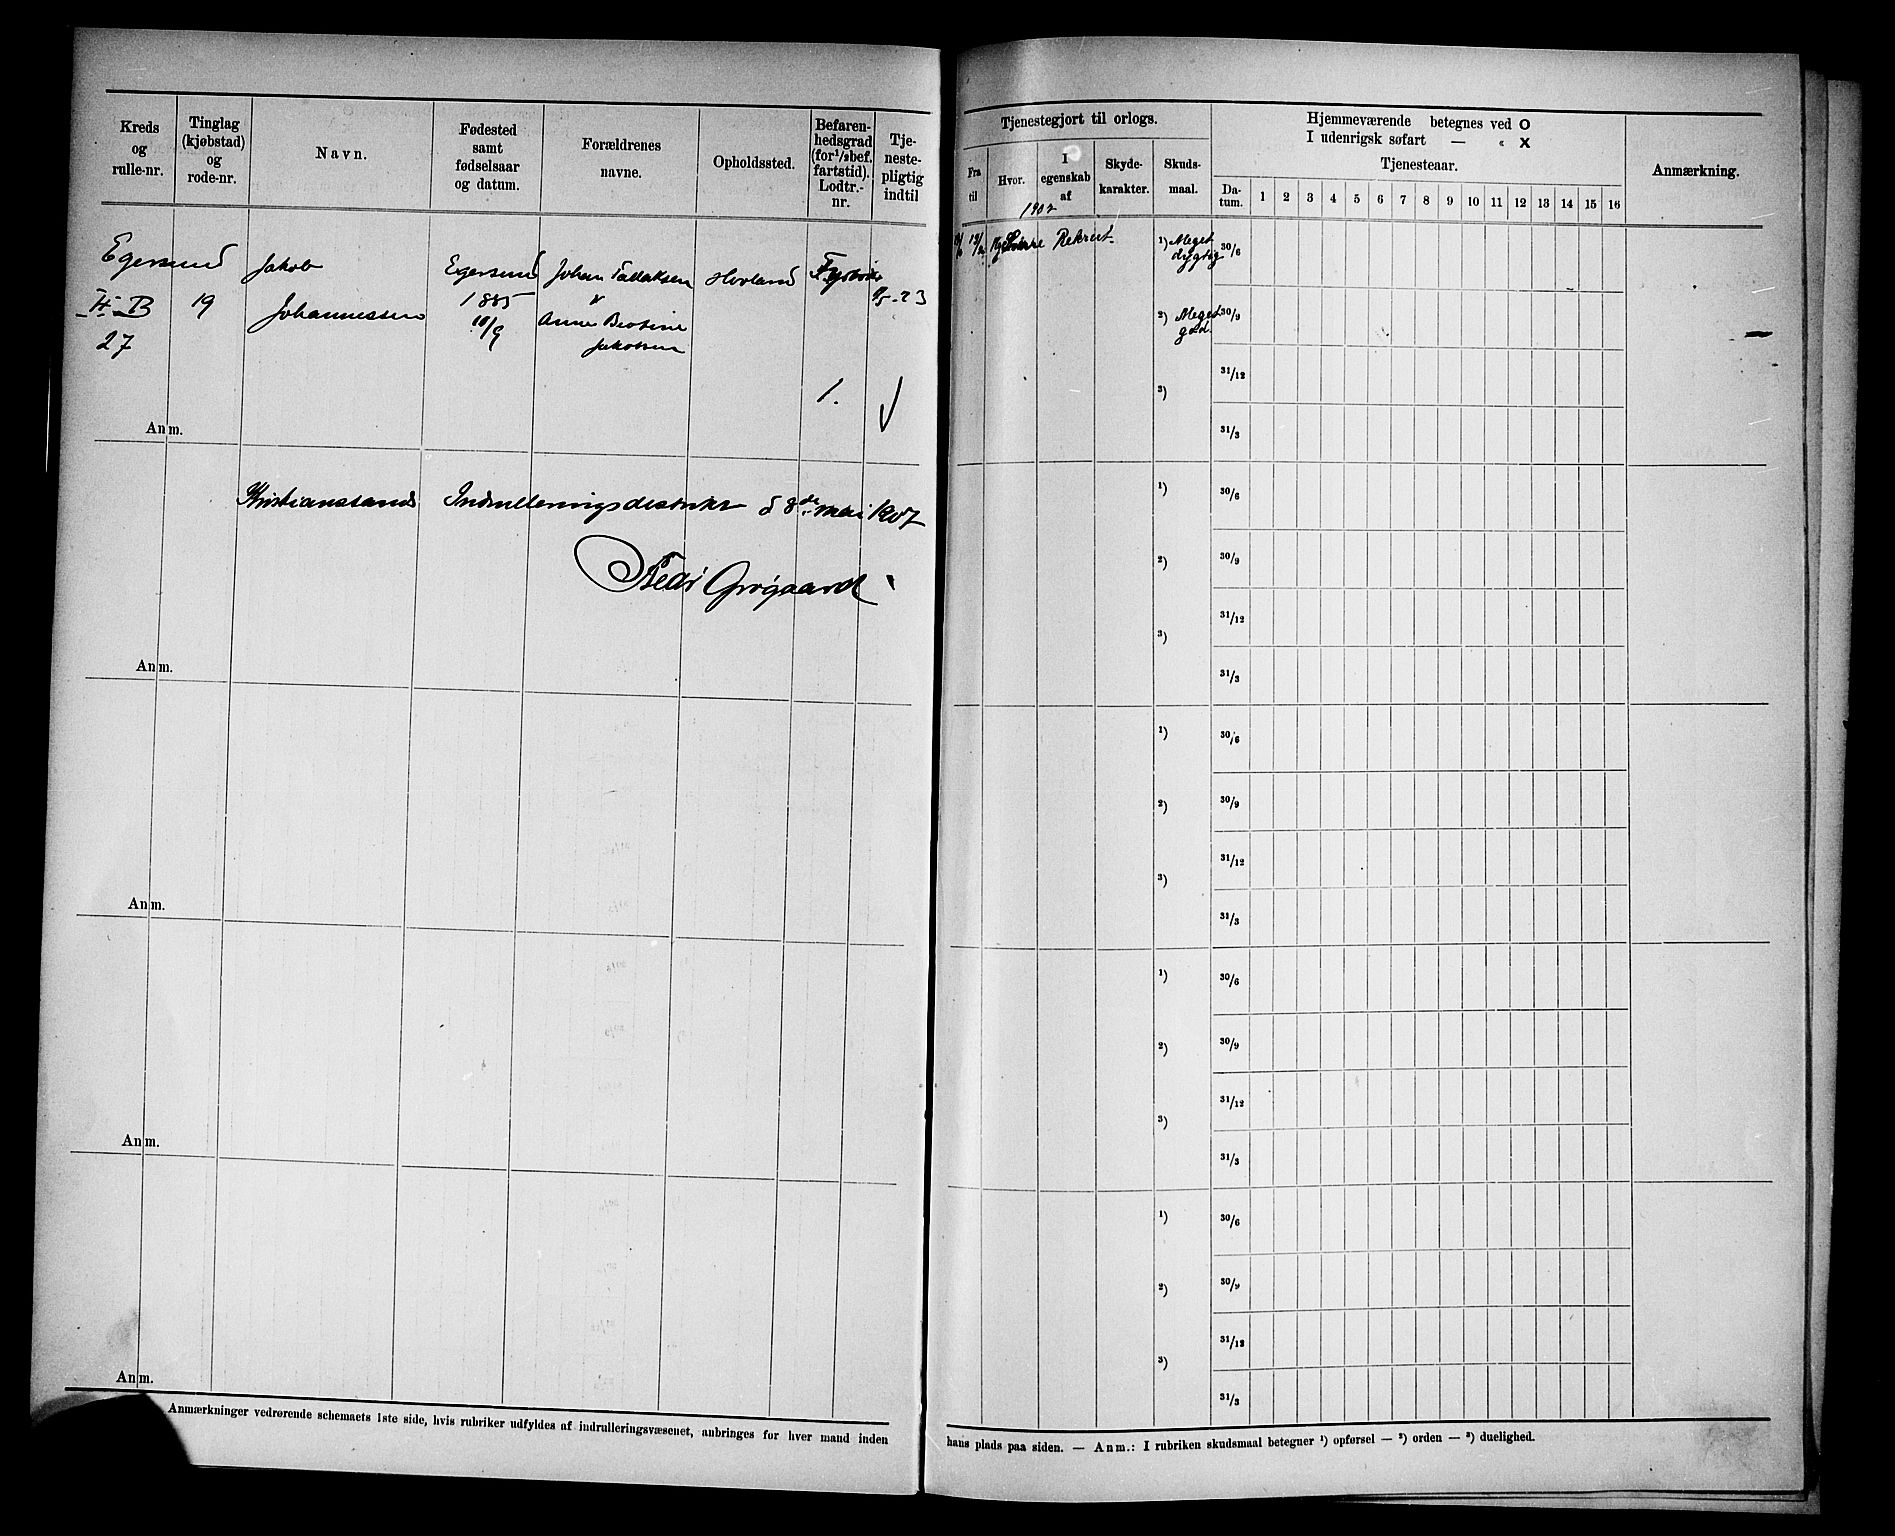 Kreds og rulle-nr.
Tinglag (kjøbstad) og rode-nr.
Navn.
Fødested samt fødselsaar og datum.
Forældrenes navne.
Opholdssted.
Befaren-hedsgrad (for ¹/₂ bef. fartstid). Lodtr.-nr.
Tje-neste-pligtig indtil
Tjenestegjort til orlogs.
Fra til
Hvor.
I egenskab af
Skyde-karakter.
Skuds-maal.
Hjemmeværende betegnes ved O
I udenrigsk søfart — « X
Tjenesteaar.
Da-tum.
1 2 3 4 5 6 7 8 9 10 11 12 13 14 15 16
Anmærkning.
1907
Egersund
II B 19
27
Jakob
Johannessen
Egersund
1885
10/9
Johan Tallaksen
&
Anne
Jakobsen
Hovland
1.
Rekrut
¹) Meget dygtig
30/6
²) Meget god.
30/9
31/12
³)
31/3
Anm.
Kristianssands Indrulleringsdistrikt d 8de mai 1907
Grøgaard
¹)
30/6
²)
30/9
31/12
³)
31/3
Anm.
¹)
30/6
²)
30/9
31/12
³)
31/3
Anm.
¹)
30/6
²)
30/9
31/12
³)
31/3
Anm.
¹)
30/6
²)
30/9
31/12
³)
31/3
Anm.
Anmærkninger vedrørende schemaets 1ste side, hvis rubriker udfyldes af indrulleringsvæsenet, anbringes for hver mand inden
hans plads paa siden. — Anm.: I rubriken skudsmaal betegner ¹) opførsel — ²) orden — ³) duelighed.